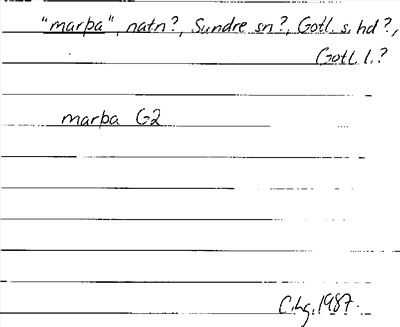 "marþa", natn?, Sundre sn?, Gotl. s. hd?,
Gotl. l.?
marþa G2
C.hg. 1987.